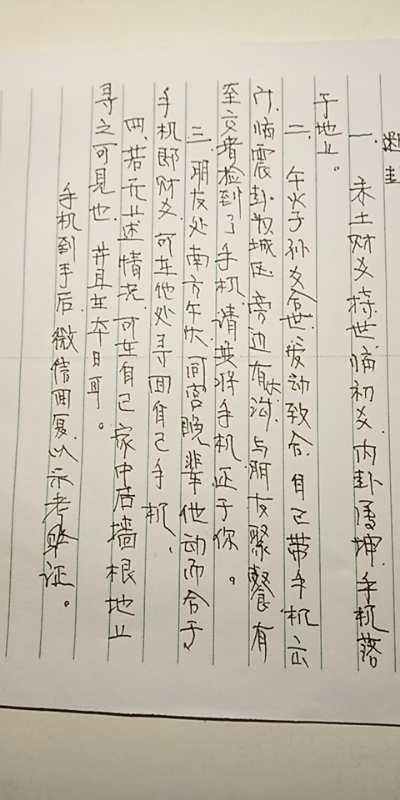 断卦
一、未土财爻持世临初爻，内卦属坤，手机落
于地上。
二、午火子孙爻合世，发动致合，自己带手机出
门，临震卦为城区，旁边有水沟，与朋友聚餐，有
至交者捡到了手机，请其将手机还于你。
三、朋友处南方午火，同宫晚辈，他动而合于
手机即财爻，可在他处寻回自己手机，
四、若无上述情况，可在自己家中后墙根地上
寻之可见也，并且在本日耳。
手机到手后，微信回复，以示考证。